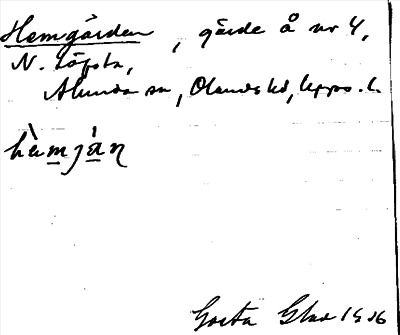 Hemgården, gärde å nr 4,
N. Löfsta,
Alunda sn, Olands hd, Upps. l.
hæ̀mján
Gösta